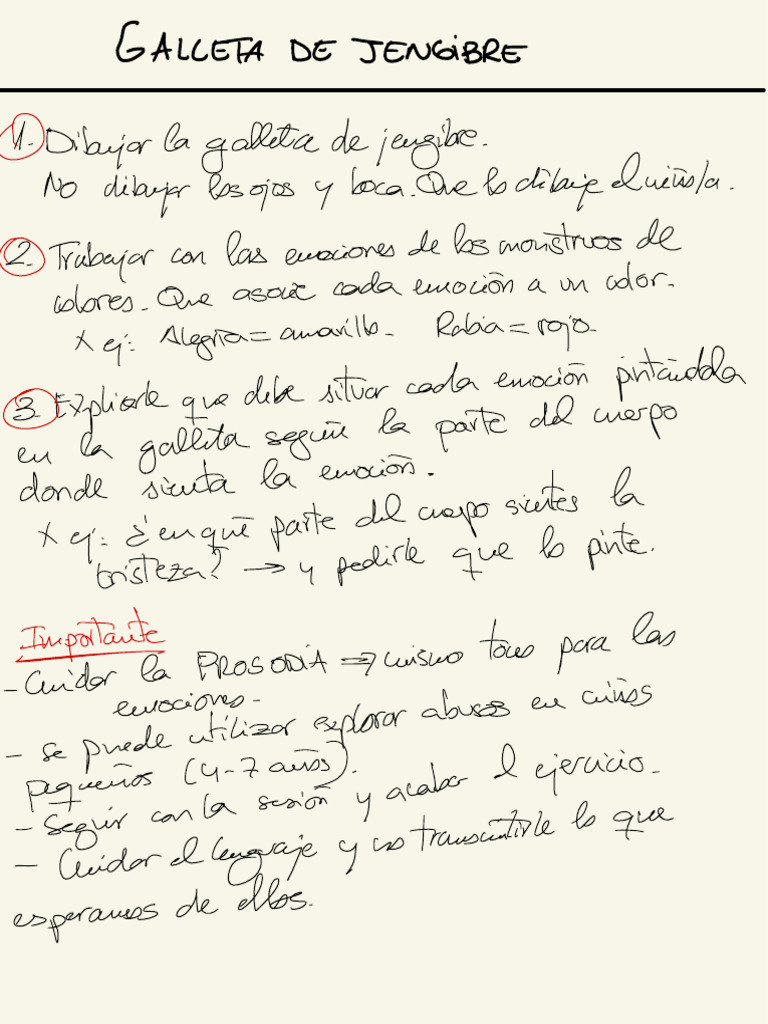 GALLETA DE JENGIBRE
1. Dibujar la galleta de jengibre.
No dibujar los ojos y boca. Que lo dibuje el niño/a.
2. Trabajar con las emociones de los monstruos de
colores. Que asocie cada emoción a un color.
x ej: Alegría = amarillo. Rabia = rojo.
3. Explicarle que debe situar cada emoción pintándola
en la galleta según la parte del cuerpo
donde sienta la emoción.
x ej: ¿en qué parte del cuerpo sientes la
tristeza? → y pedirle que lo pinte.
Importante
- Cuidar la PROSODIA ⇒ mismo tono para las
emociones.
- se puede utilizar explorar abusos en niños
pequeños (4-7 años).
- Seguir con la sesión y acabar el ejercicio.
- Cuidar el lenguaje y no transmitirle lo que
esperamos de ellos.